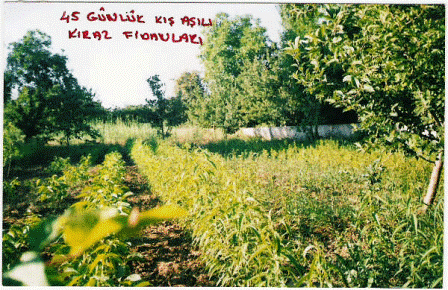 45 GÜNLÜK KIŞ AŞILI
KIRAZ FİDANLARI